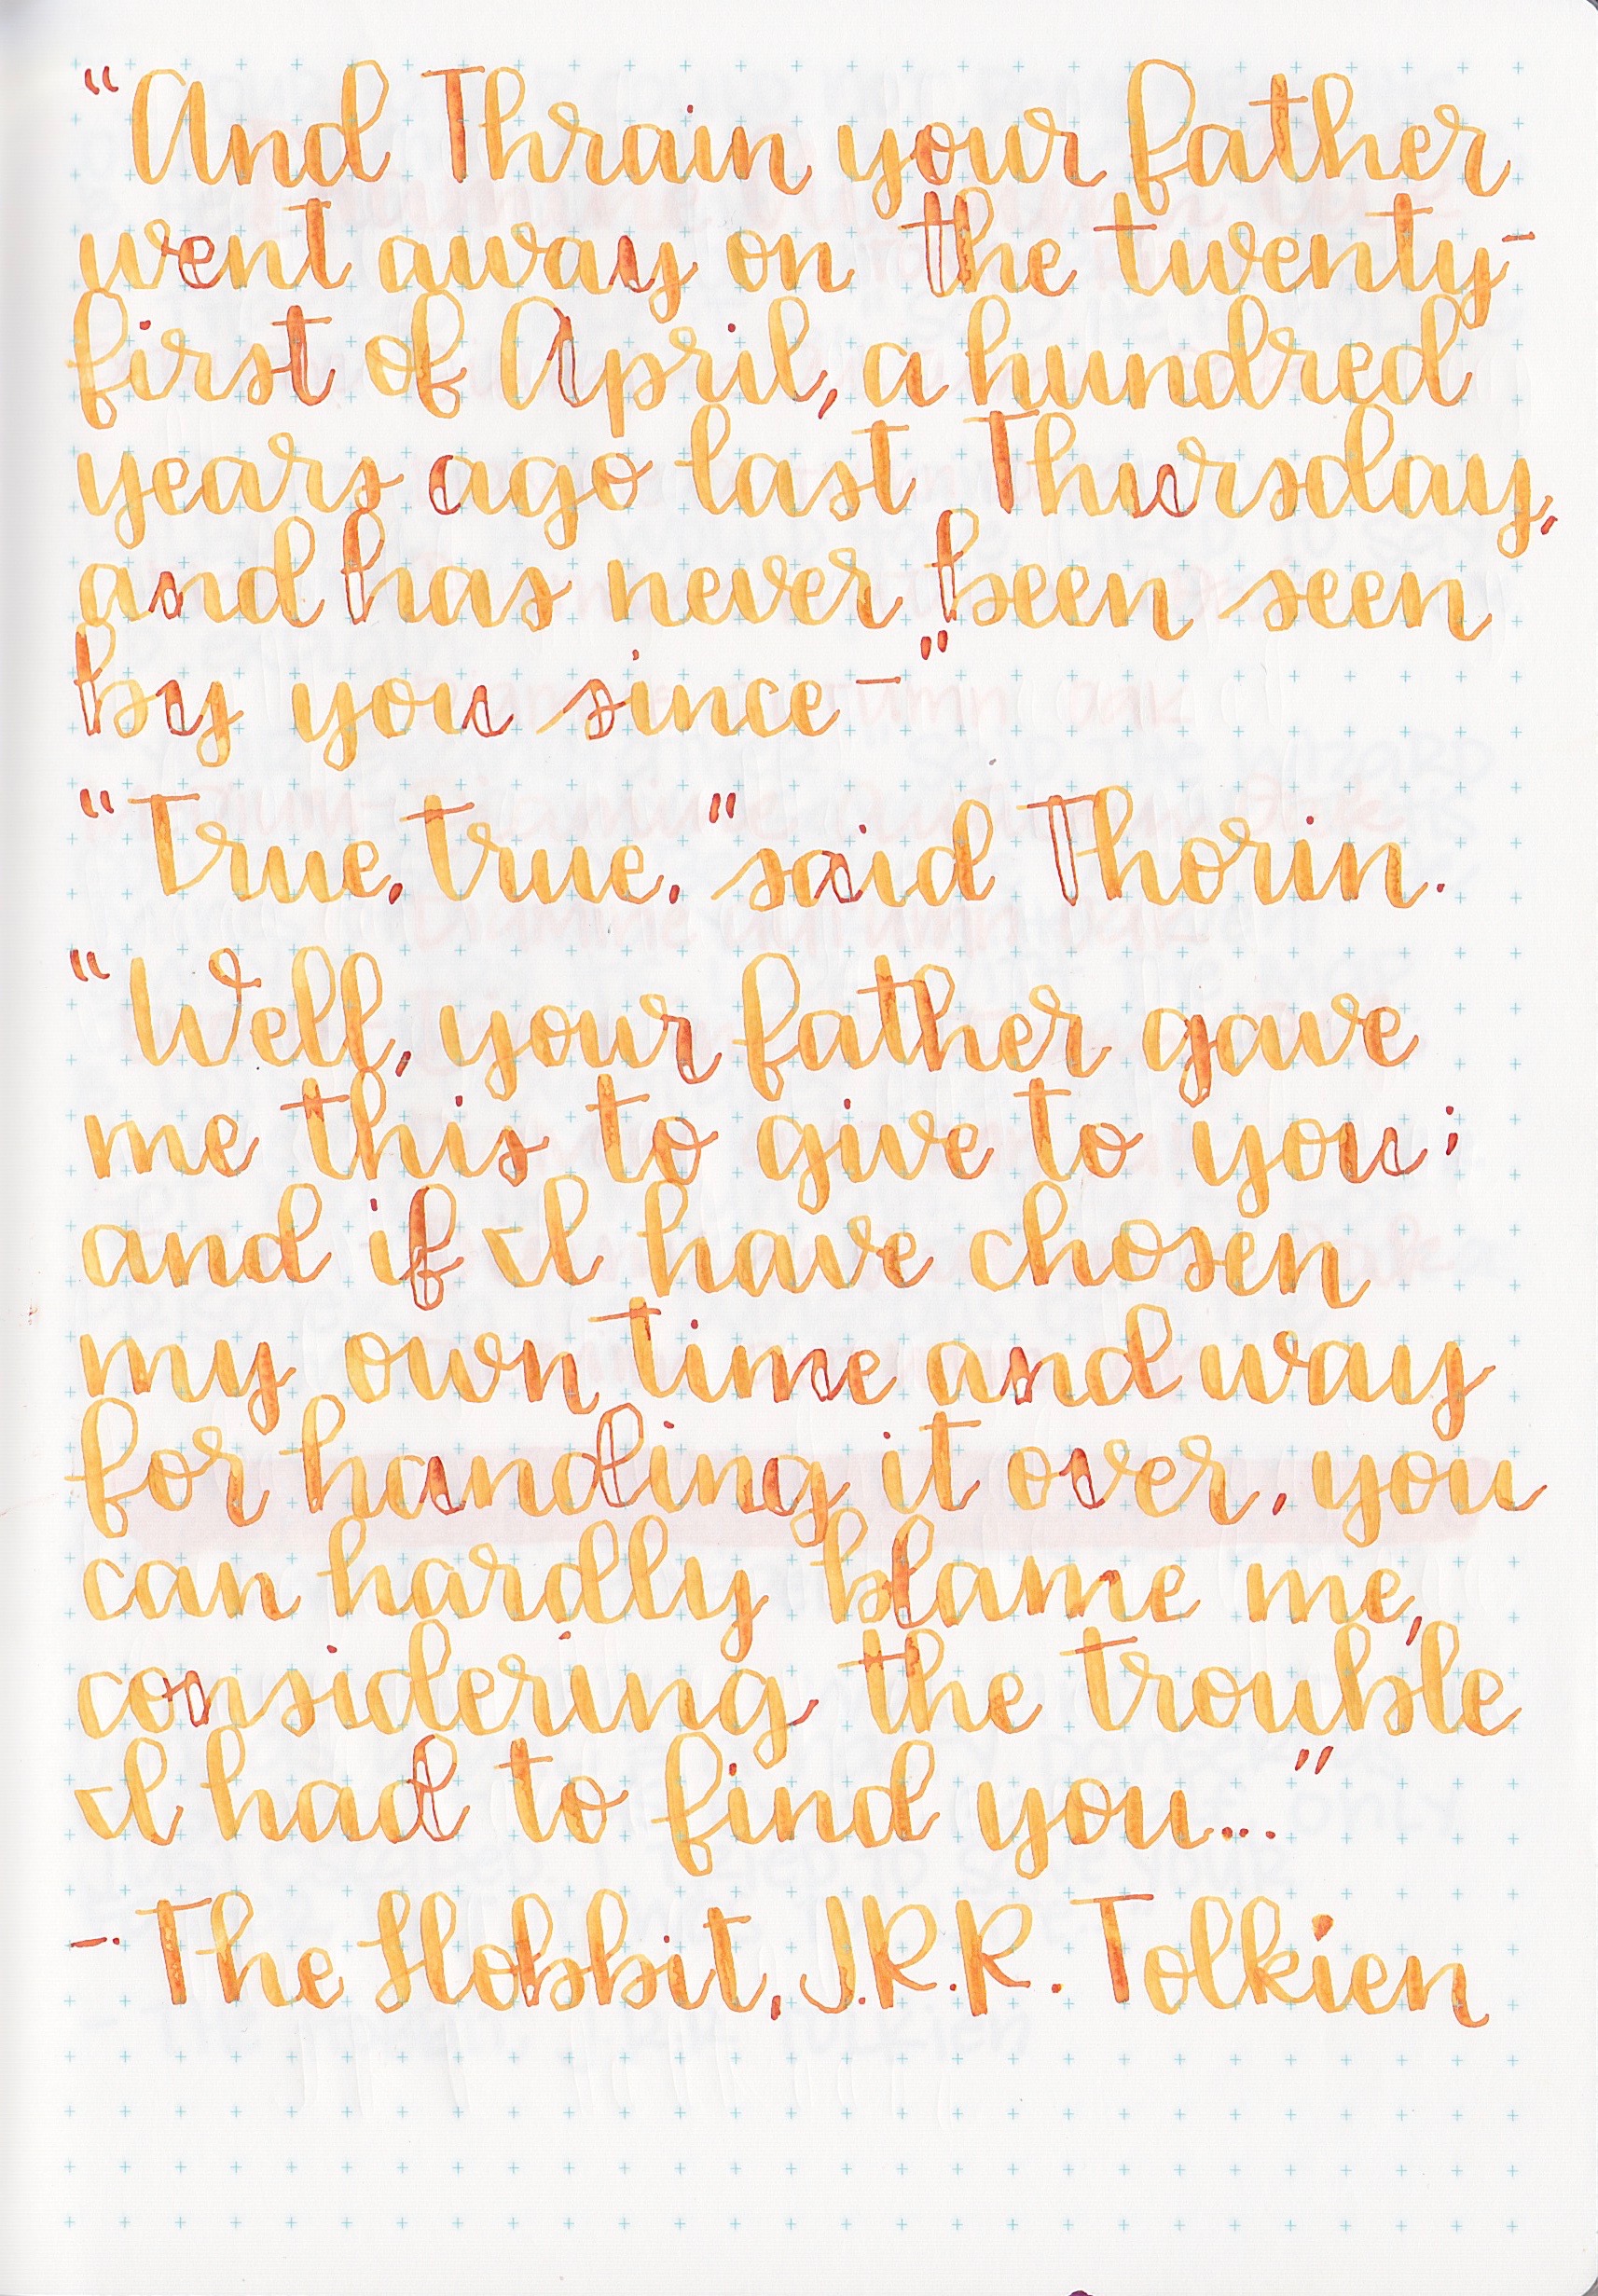 "And Thrain your father
went away on the twenty-
first of April, a hundred
years ago last Thursday,
and has never been seen
by you since—"
"True, true," said Thorin.
"Well, your father gave
me this to give to you;
and if I have chosen
my own time and way
for handling it over, you
can hardly blame me,
considering the trouble
I had to find you..."
- The Hobbit, J.R.R. Tolkien